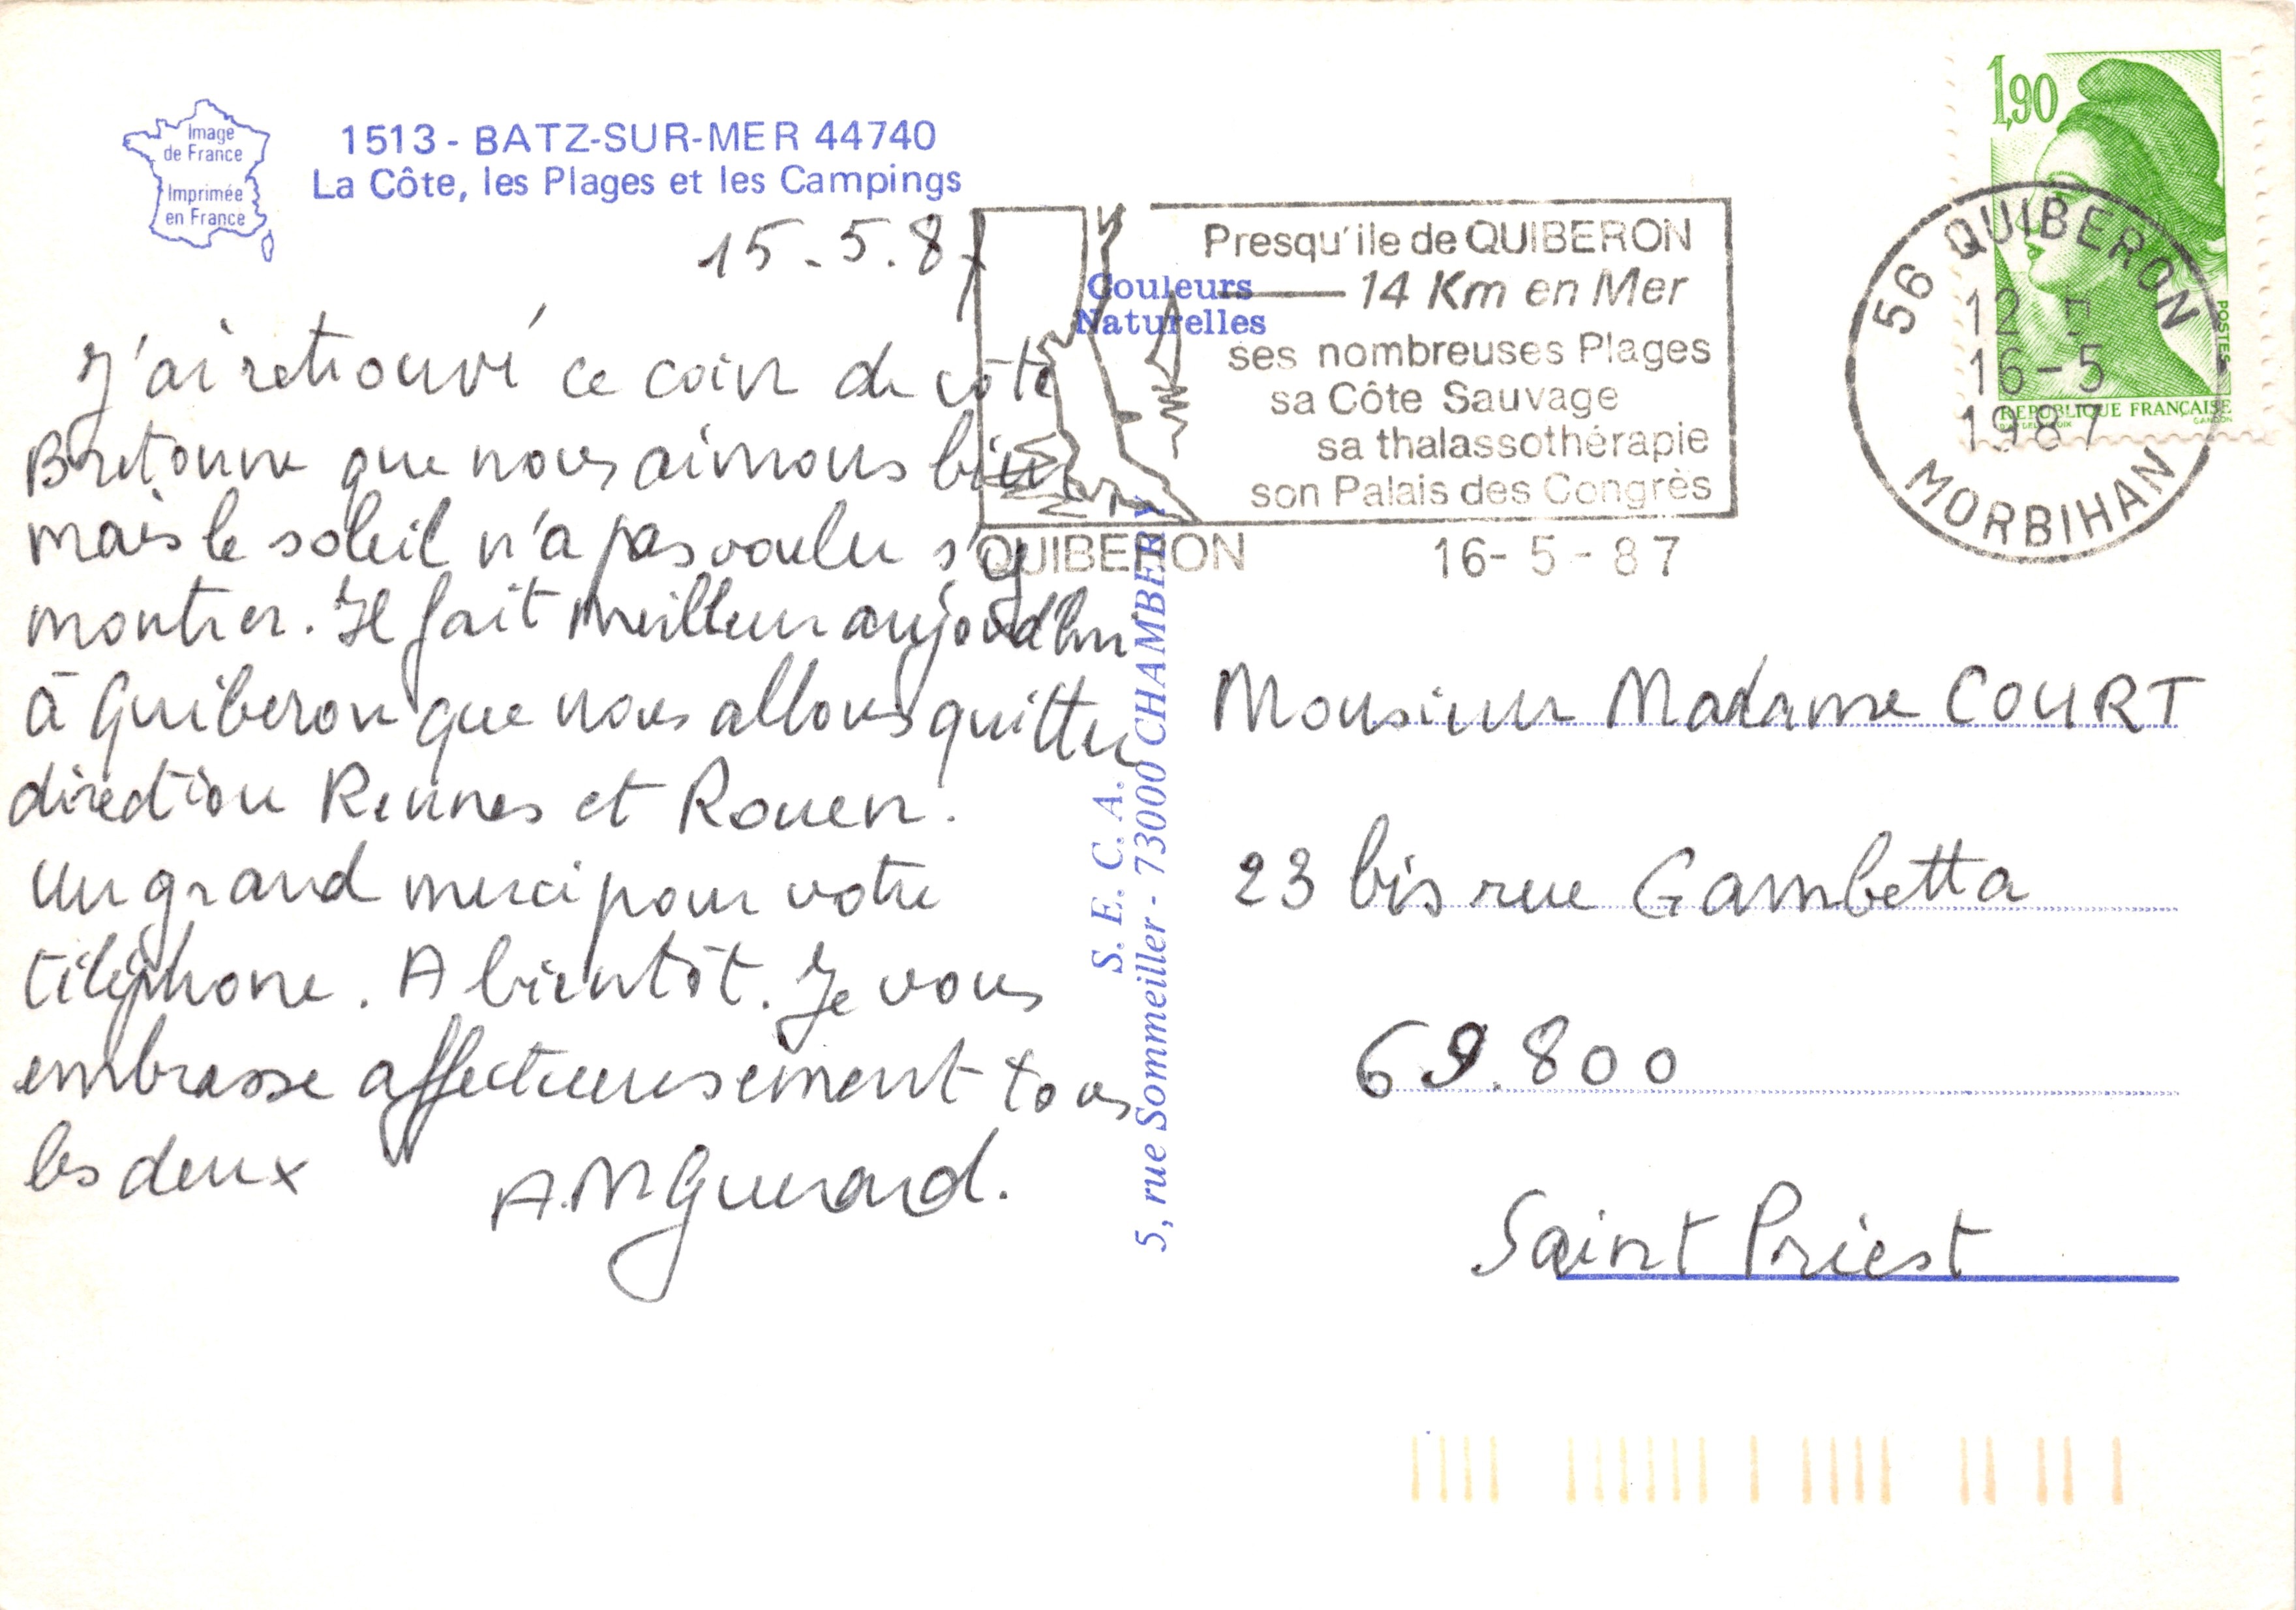 Image
de France
Imprimée
en France
1513 - BATZ-SUR-MER 44740
La Côte, les Plages et les Campings
15.5.87
J'ai retrouvé ce coin de côte
Bretonne que nous aimons bien
mais le soleil n'a pas voulu s'y
montrer. Il fait meilleur aujourd'hui
à Quiberon que nous allons quitter
direction Rennes et Rouen.
Un grand merci pour votre
téléphone. A bientôt. Je vous
embrasse affectueusement tous
les deux
A.M Guerard.
Couleurs
Naturelles
S. E. C. A.
5, rue Sommeiller - 73000 CHAMBERY
Presqu'ile de QUIBERON
14 Km en Mer
ses nombreuses Plages
sa Côte Sauvage
sa thalassothérapie
son Palais des Congrès
QUIBERON 16-5-87
1,90
POSTES
REPUBLIQUE FRANÇAISE
GANDON
56 QUIBERON
12 H
16-5
1987
MORBIHAN
Monsieur Madame COURT
23 bis rue Gambetta
69.800
Saint Priest